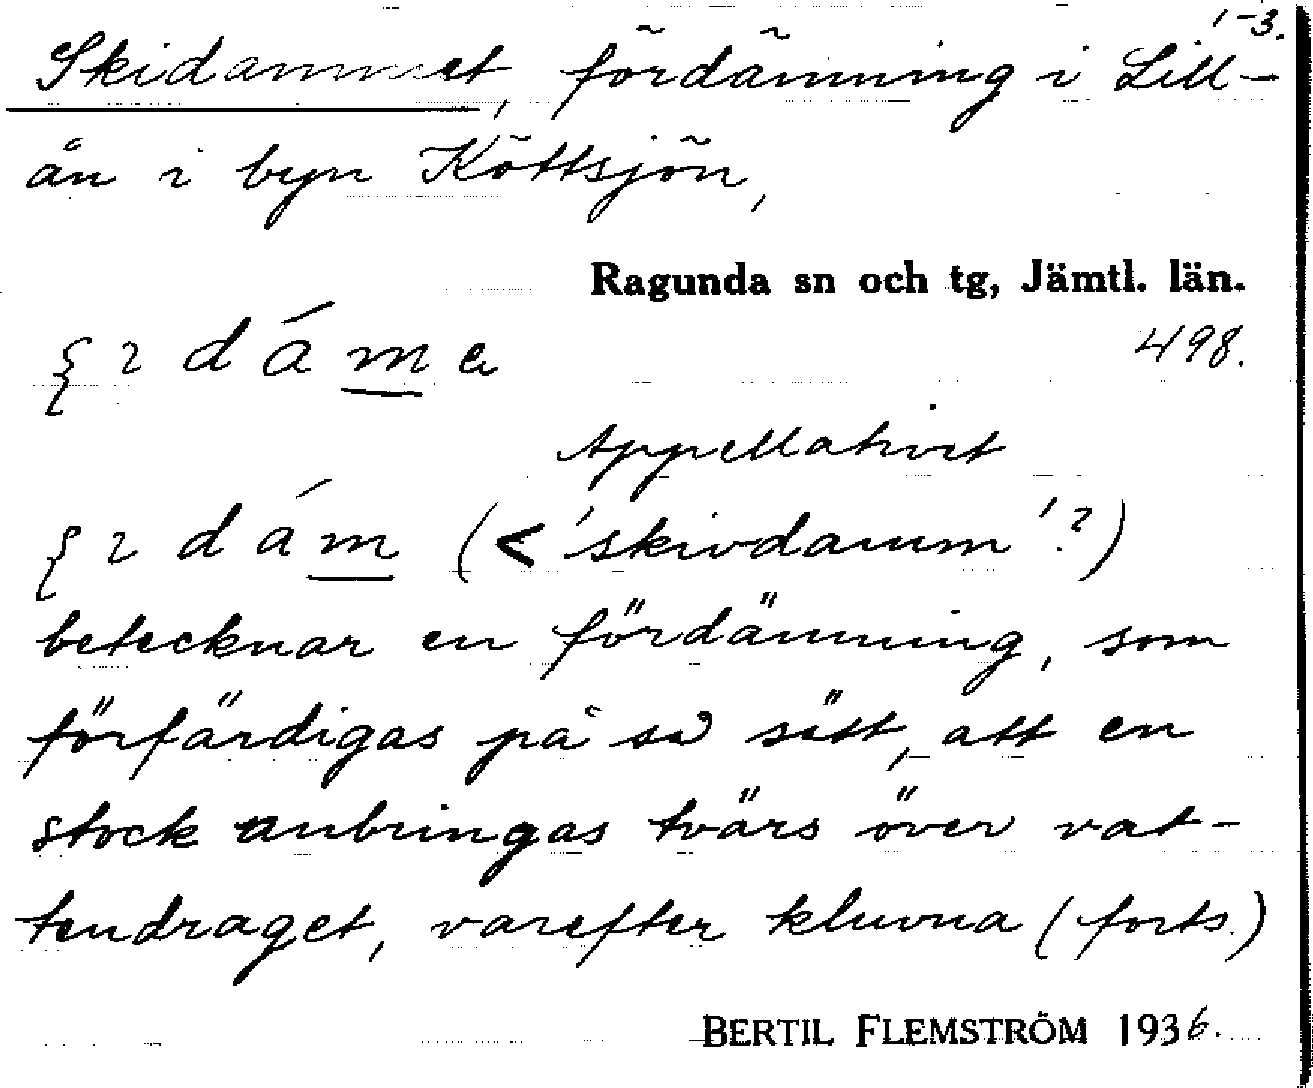 1-3.
Skidammet, fördämning i Lill-
ån i byn Köttsjön,
Ragunda sn och tg, Jämtl. län.
498.
Appellativet
(< 'skivdamm'?)
betecknar en fördämning, som
förfärdigas på så sätt, att en
stock anbringas tvärs över vat-
tendraget, varefter kluvna (forts.)
BERTIL FLEMSTRÖM 1936.